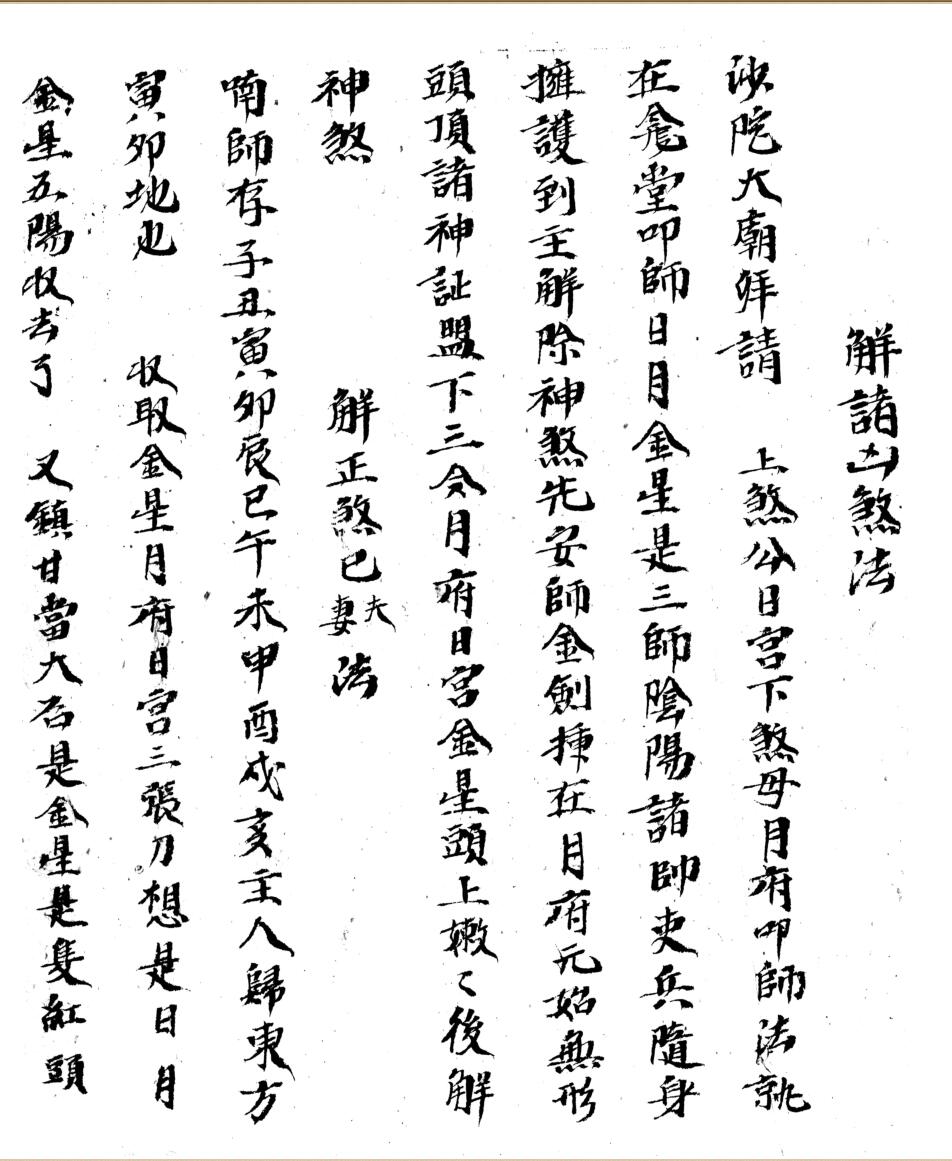 解諸凶煞法
沙陀大廟拜請　上煞公日宮下煞母月府叩師法就
在龕堂叩師日月金星是三師陰陽諸帥吏兵隨身
擁護到主解除神煞先安師金劍揷在月府元始無形
頭頂諸神証盟下三令月府日宮金星頭上嫩〻後解
神煞　解正煞已夫妻法
喃師存子丑寅卯辰巳午未申酉戌亥主人歸東方
寅卯地也　收取金星月府日宮三張刀想是日月
金星五陽收去了　又鎮甘當大石是金星是隻紅頭